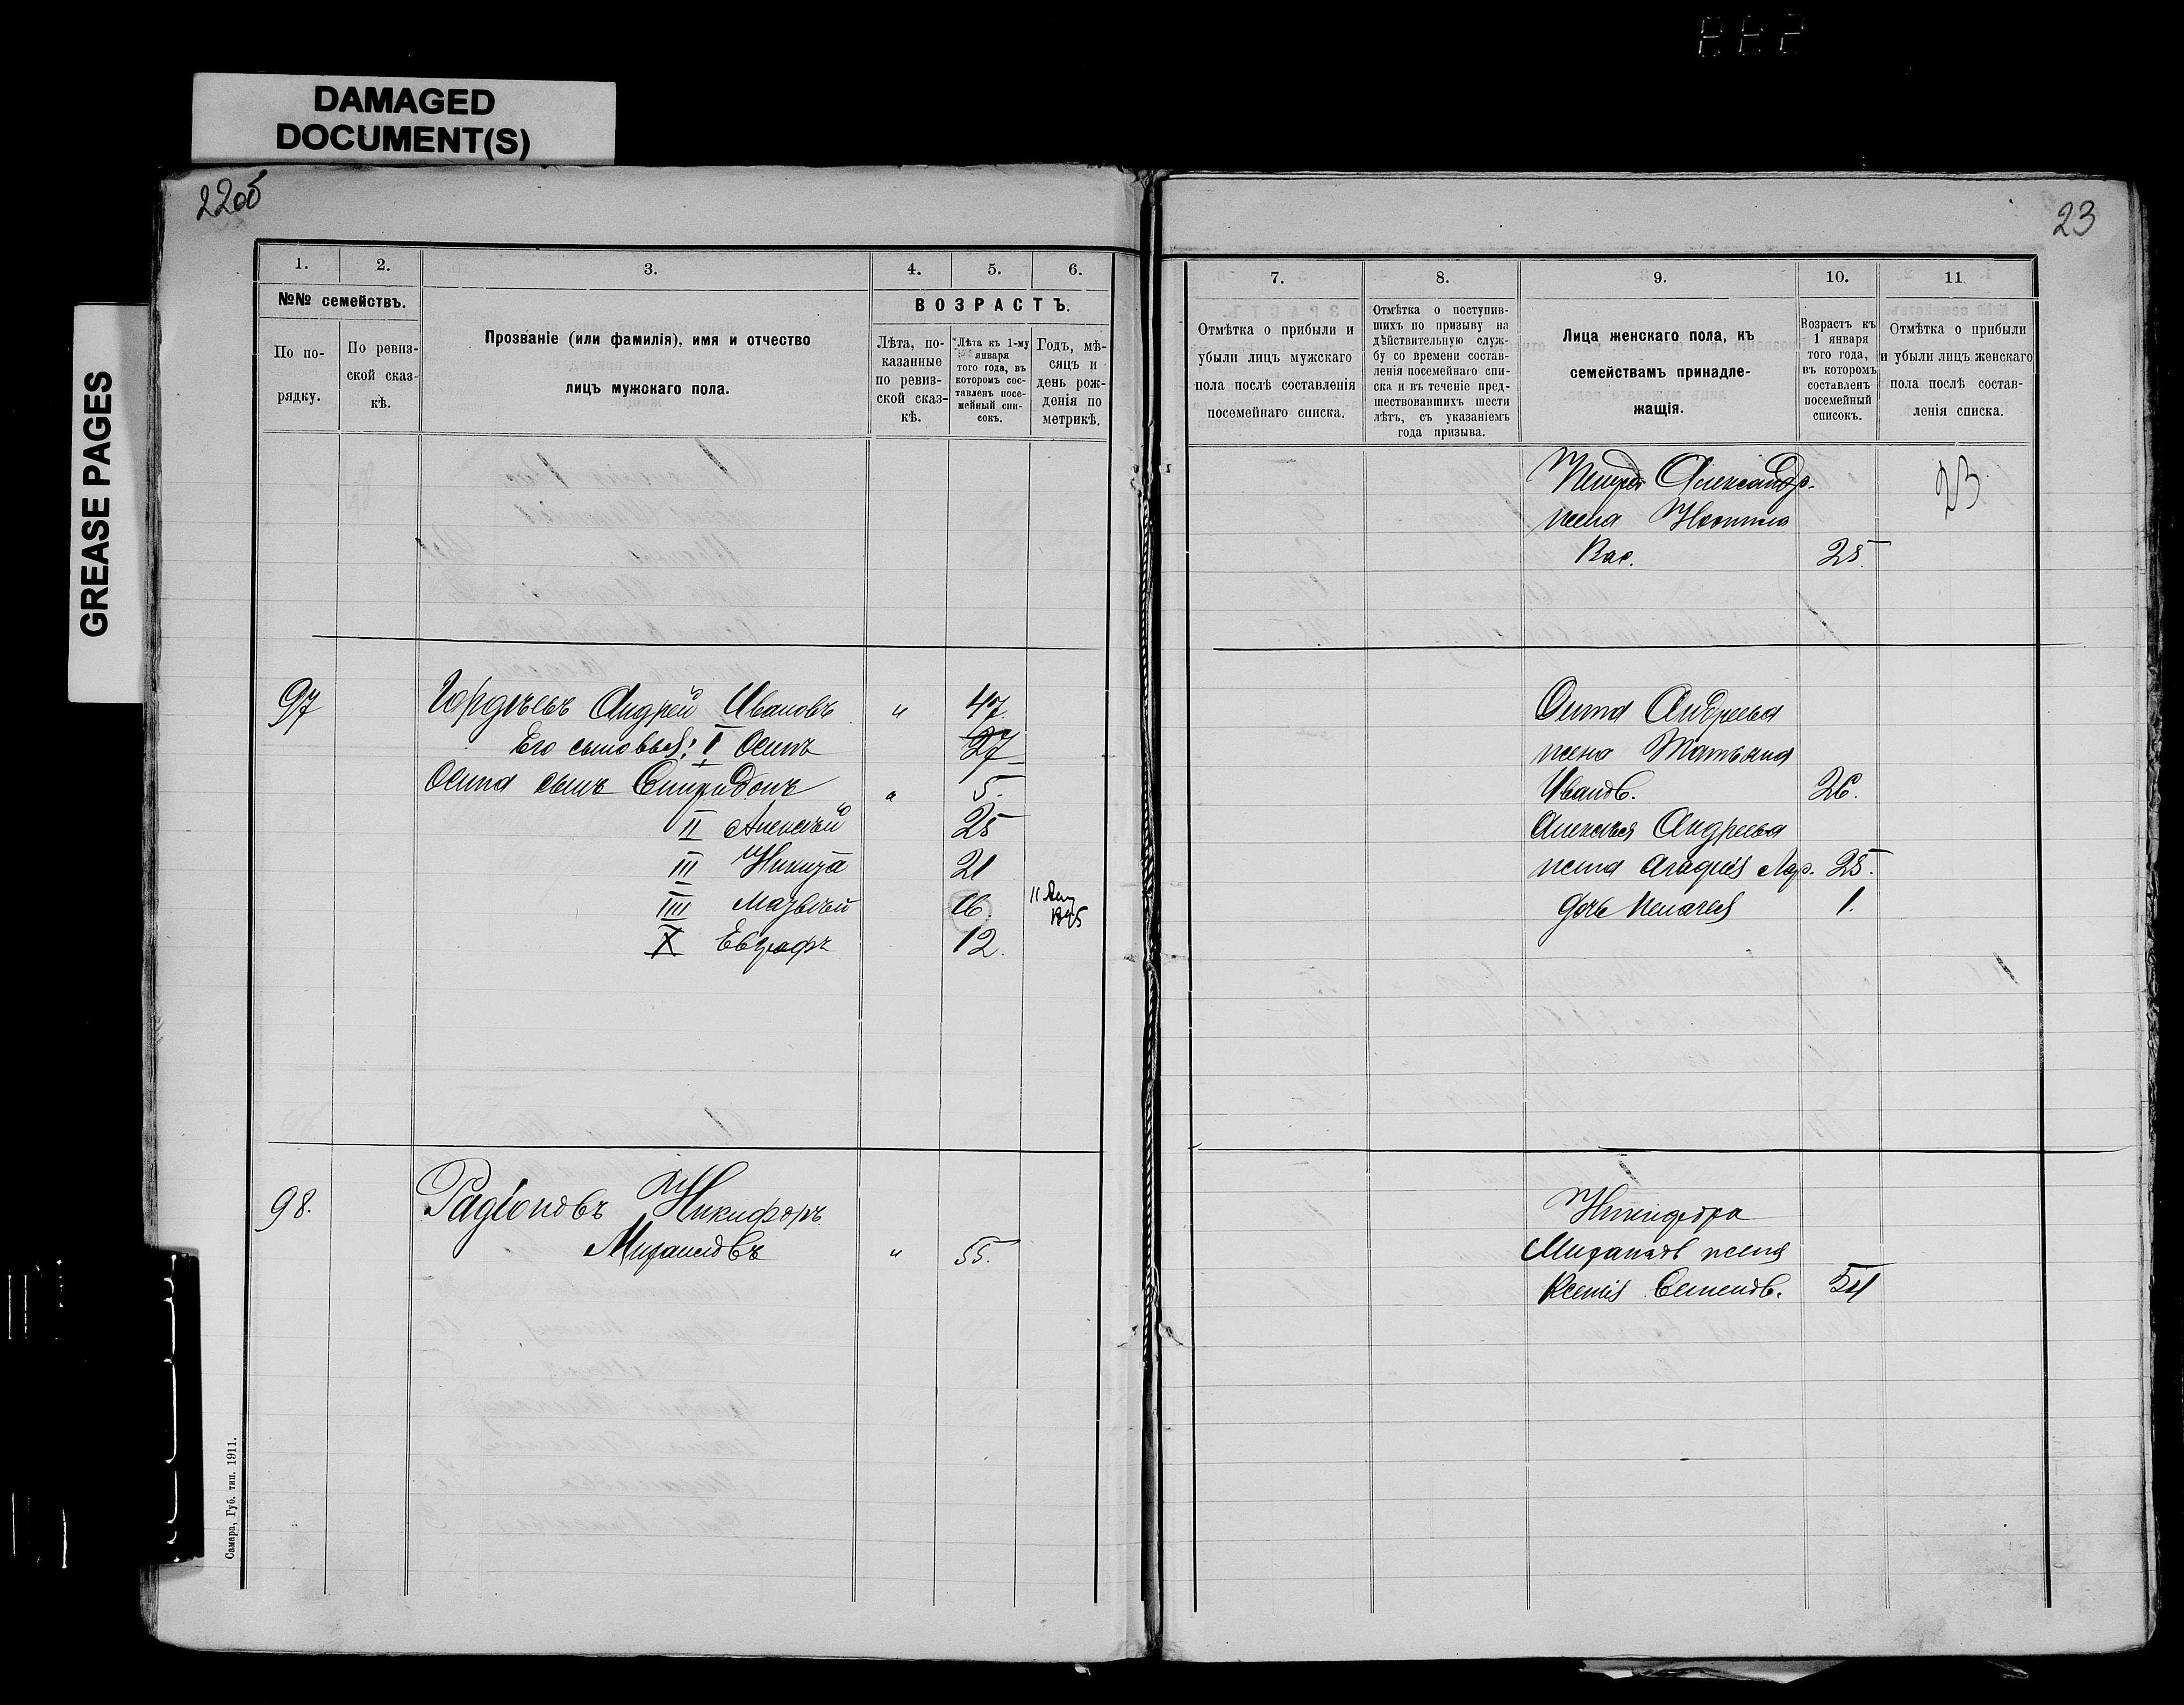 DAMAGED
DOCUMENT(S)
GREASE PAGES
22об
23
1. 2. 3. 4. 5. 6.
№№ семействъ.
По по-
рядку.
По ревиз-
ской сказ-
кѣ.
Прозваніе (или фамилія), имя и отчество
лицъ мужскаго пола.
ВОЗРАСТЪ.
Лѣта, по-
казанные
по ревиз-
ской сказ-
кѣ.
Лѣта къ 1-му
января
того года, въ
которомъ сос-
тавленъ посе-
мейный спи-
сокъ.
Годъ, мѣ-
сяцъ и
день рож-
денія по
метрикѣ.
97 Андрей Ивановъ " 47.
Его сыновья: I Осипъ 27
Осипа сынъ Спиридонъ 5.
II Алексѣй 25
III Никита 21
IIII 16. 11
V Евграфъ 12.
98. Радіоновъ Никифоръ
" 55.
Самара, Губ. тип. 1911.
7. 8. 9. 10. 11
Отмѣтка о прибыли и
убыли лицъ мужскаго
пола послѣ составленія
посемейнаго списка.
Отмѣтка о поступив-
шихъ по призыву на
дѣйствительную служ-
бу со времени состав-
ленія посемейнаго спи-
ска и въ теченіе пред-
шествовавшихъ шести
лѣтъ, съ указаніемъ
года призыва.
Лица женскаго пола, къ
семействамъ принадле-
жащія.
Возрастъ къ
1 января
того года,
въ которомъ
составленъ
посемейный
списокъ.
Отмѣтка о прибыли
и убыли лицъ женскаго
пола послѣ состав-
ленія списка.
Петра Александр. 23
жена
Вас. 25.
Осипа Андреева
жена Татьяна
Иванов. 26.
Алексѣя Андреева
жена 25.
дочь 1.
Никифора
жена
Ксенія Семенов. 54